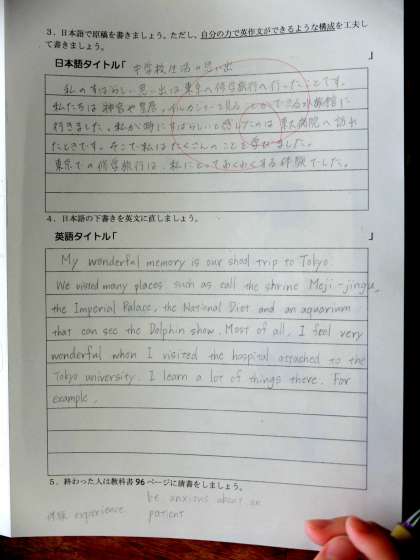 3．日本語で原稿を書きましょう。ただし、自分の力で英作文ができるような構成を工夫し
て書きましょう。
日本語タイトル「 中学校生活の思い出 」
私のすばらしい思い出は東京への修学旅行へ行ったことです。
私たちは神宮や皇居、イルカショーを見ることができる水族館に
行きました。私が特にすばらしいと感じたのは東大病院へ訪れ
たときです。そこで私はたくさんのことを学びました。
東京での修学旅行は、私にとってわくわくする体験でした。
4．日本語の下書きを英文に直しましょう。
英語タイトル「 」
My wonderful memory is our shool trip to Tokyo.
We visited many places such as call the shrine Meji-jingu,
the Imperial Palace, the National Diet and an aquarium
that can see the Dolphin show. Most of all, I feel very
wonderful when I visited the hospital attached to the
Tokyo university. I learn a lot of things there. For
example,
5．終わった人は教科書96ページに清書をしましょう。
be anxious about an
体験 experience patient